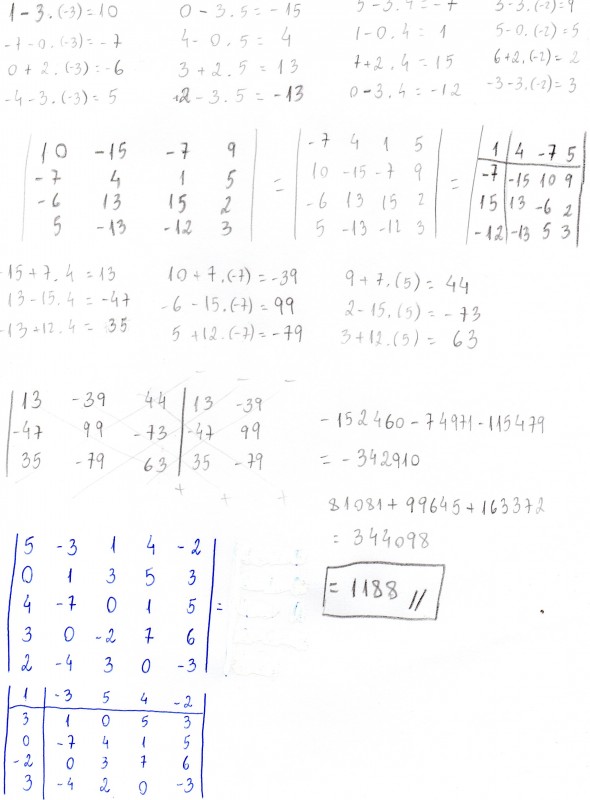 1-3.(-3)=10 0-3.5=-15 5-3.4=-7 3-3.(-2)=9
-7-0.(-3)=-7 4-0.5=4 1-0.4=1 5-0.(-2)=5
0+2.(-3)=-6 3+2.5=13 7+2.4=15 6+2.(-2)=2
-4-3.(-3)=5 2-3.5=-13 0-3.4=-12 -3-3.(-2)=3
10 -15 -7 9 = -7 4 1 5 = 1 4 -7 5
-7 4 1 5 10 -15 -7 9 -7 -15 10 9
-6 13 15 2 -6 13 15 2 15 13 -6 2
5 -13 -12 3 5 -13 -12 3 -12 -13 5 3
-15+7.4=13 10+7.(-7)=-39 9+7.(5)=44
13-15.4=-47 -6-15.(-7)=99 2-15.(5)=-73
-13+12.4=35 5+12.(-7)=-79 3+12.(5)=63
- - -
13 -39 44 13 -39
-47 99 -73 -47 99
35 -79 63 35 -79
+ + +
-152460-74971-115479
=-342910
81081+99645+163372
=344098
=1188 //
5 -3 1 4 -2
0 1 3 5 3
4 -7 0 1 5 =
3 0 -2 7 6
2 -4 3 0 -3
1 -3 5 4 -2
3 1 0 5 3
0 -7 4 1 5
-2 0 3 7 6
3 -4 2 0 -3